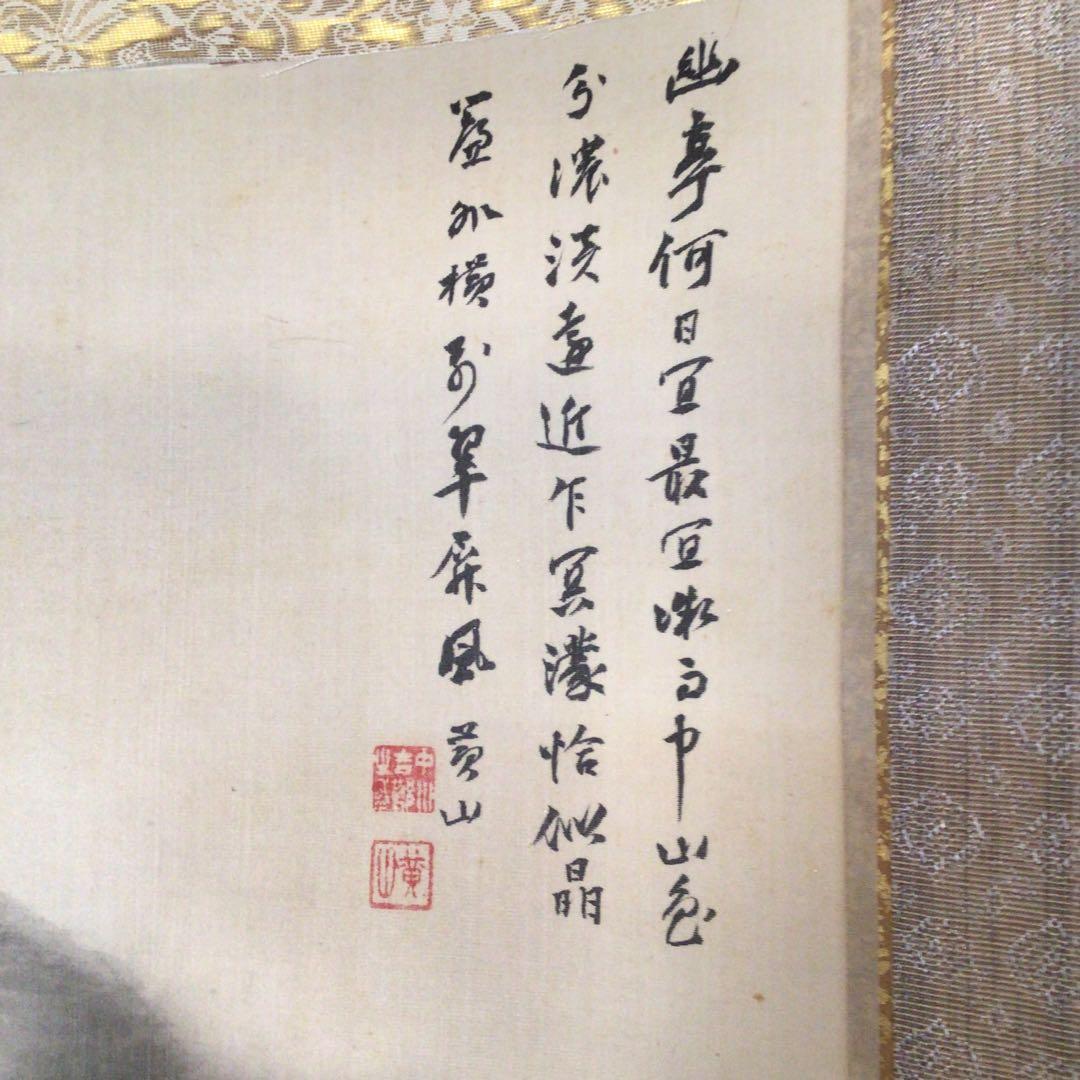 幽亭何日宜最宜微雨中山色
分濃淡遠近乍冥濛恰似晶
簾外横列翠屏風 黄山
黄山